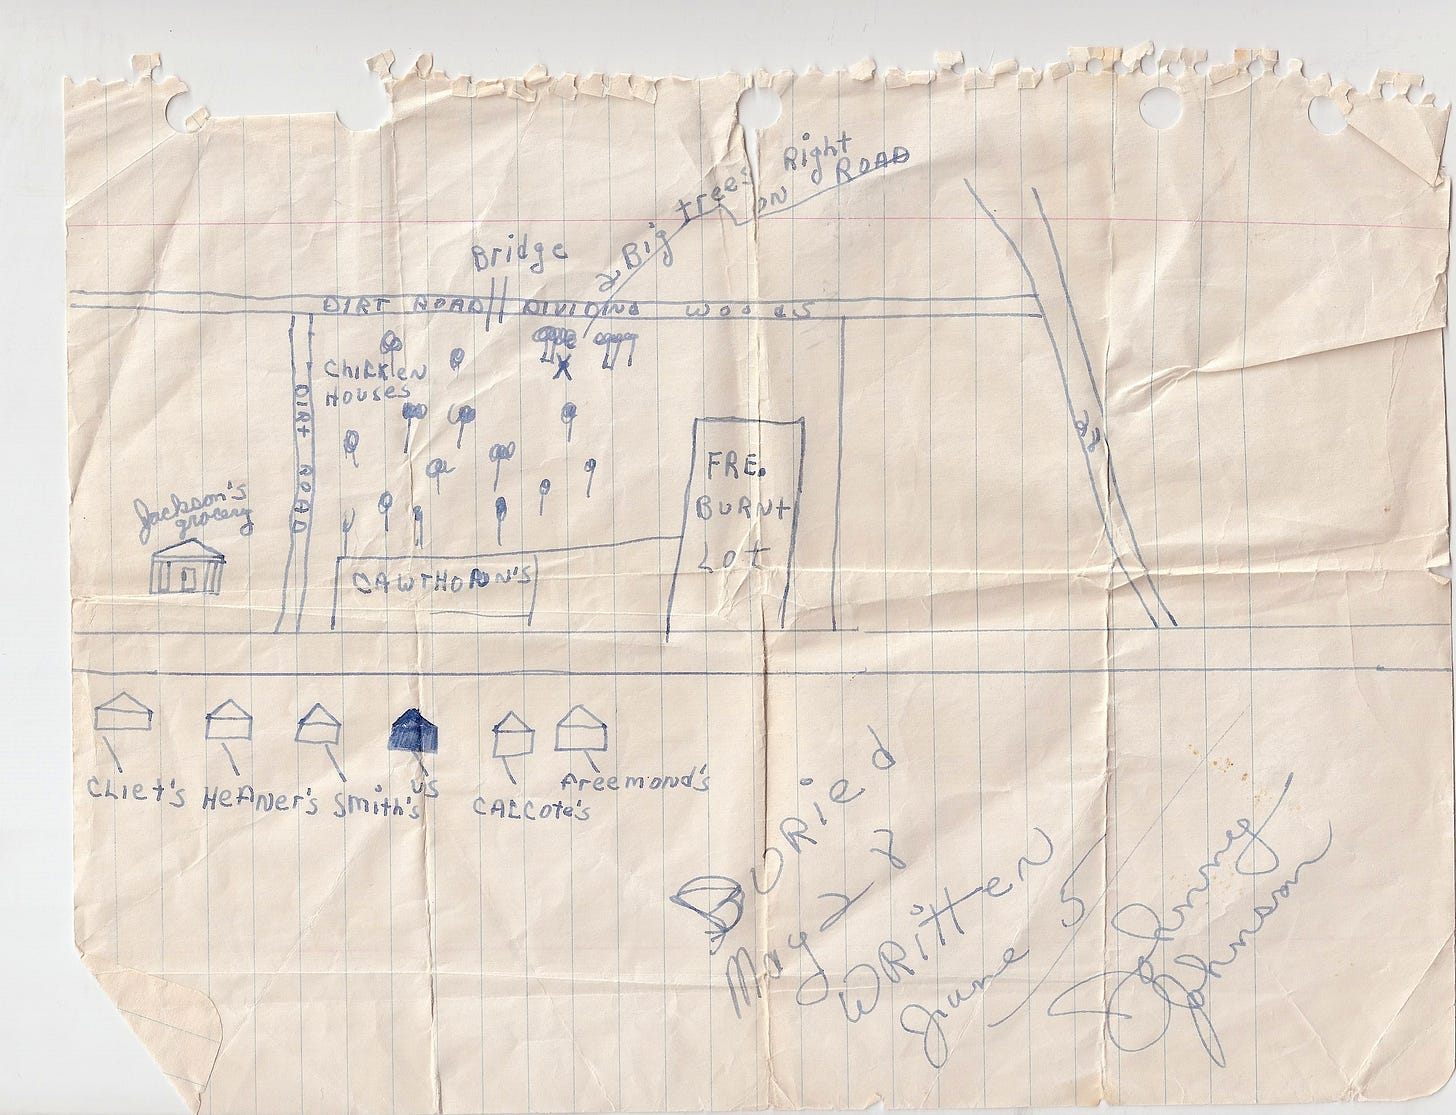 Right
2 Big trees ON ROAD
Bridge
DIRT ROAD DIVIDING WOODS
Chicken
Houses
DIRT ROAD
FRE.
BURNt
LOT
Jackson's
grocery
CAWTHORN'S
CLiet's
HeANer's
Smith's
US
CALCote's
Areemond's
BURied
May 28
WRitten
June 5
Johnny
Johnson